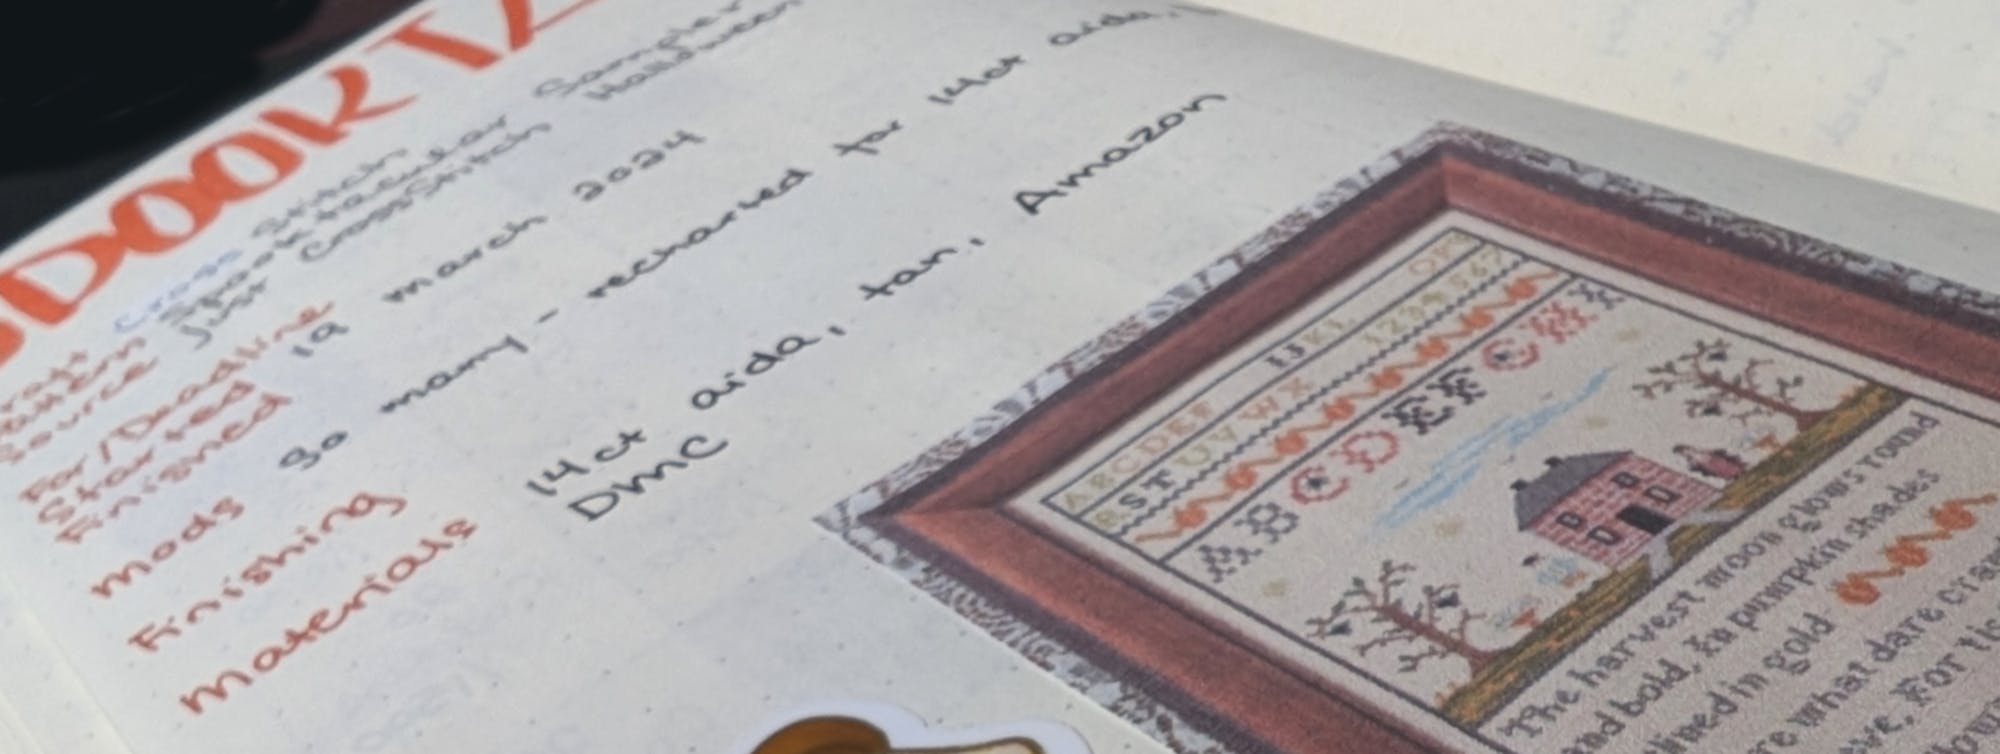 Craft Cross Stitch
Pattern Spooktacular Sampler
Source Just CrossStitch Halloween
For/Deadline
Started 19 march 2024
Finished
Mods So many - recharted for 14ct aida,
Finishing
Materials 14ct aida, tan, Amazon
DMC
ABCDEF IJKL OP
RSTUVWX 1234567
The harvest moon glows round
and bold, In pumpkin shades
in gold
what dare
For